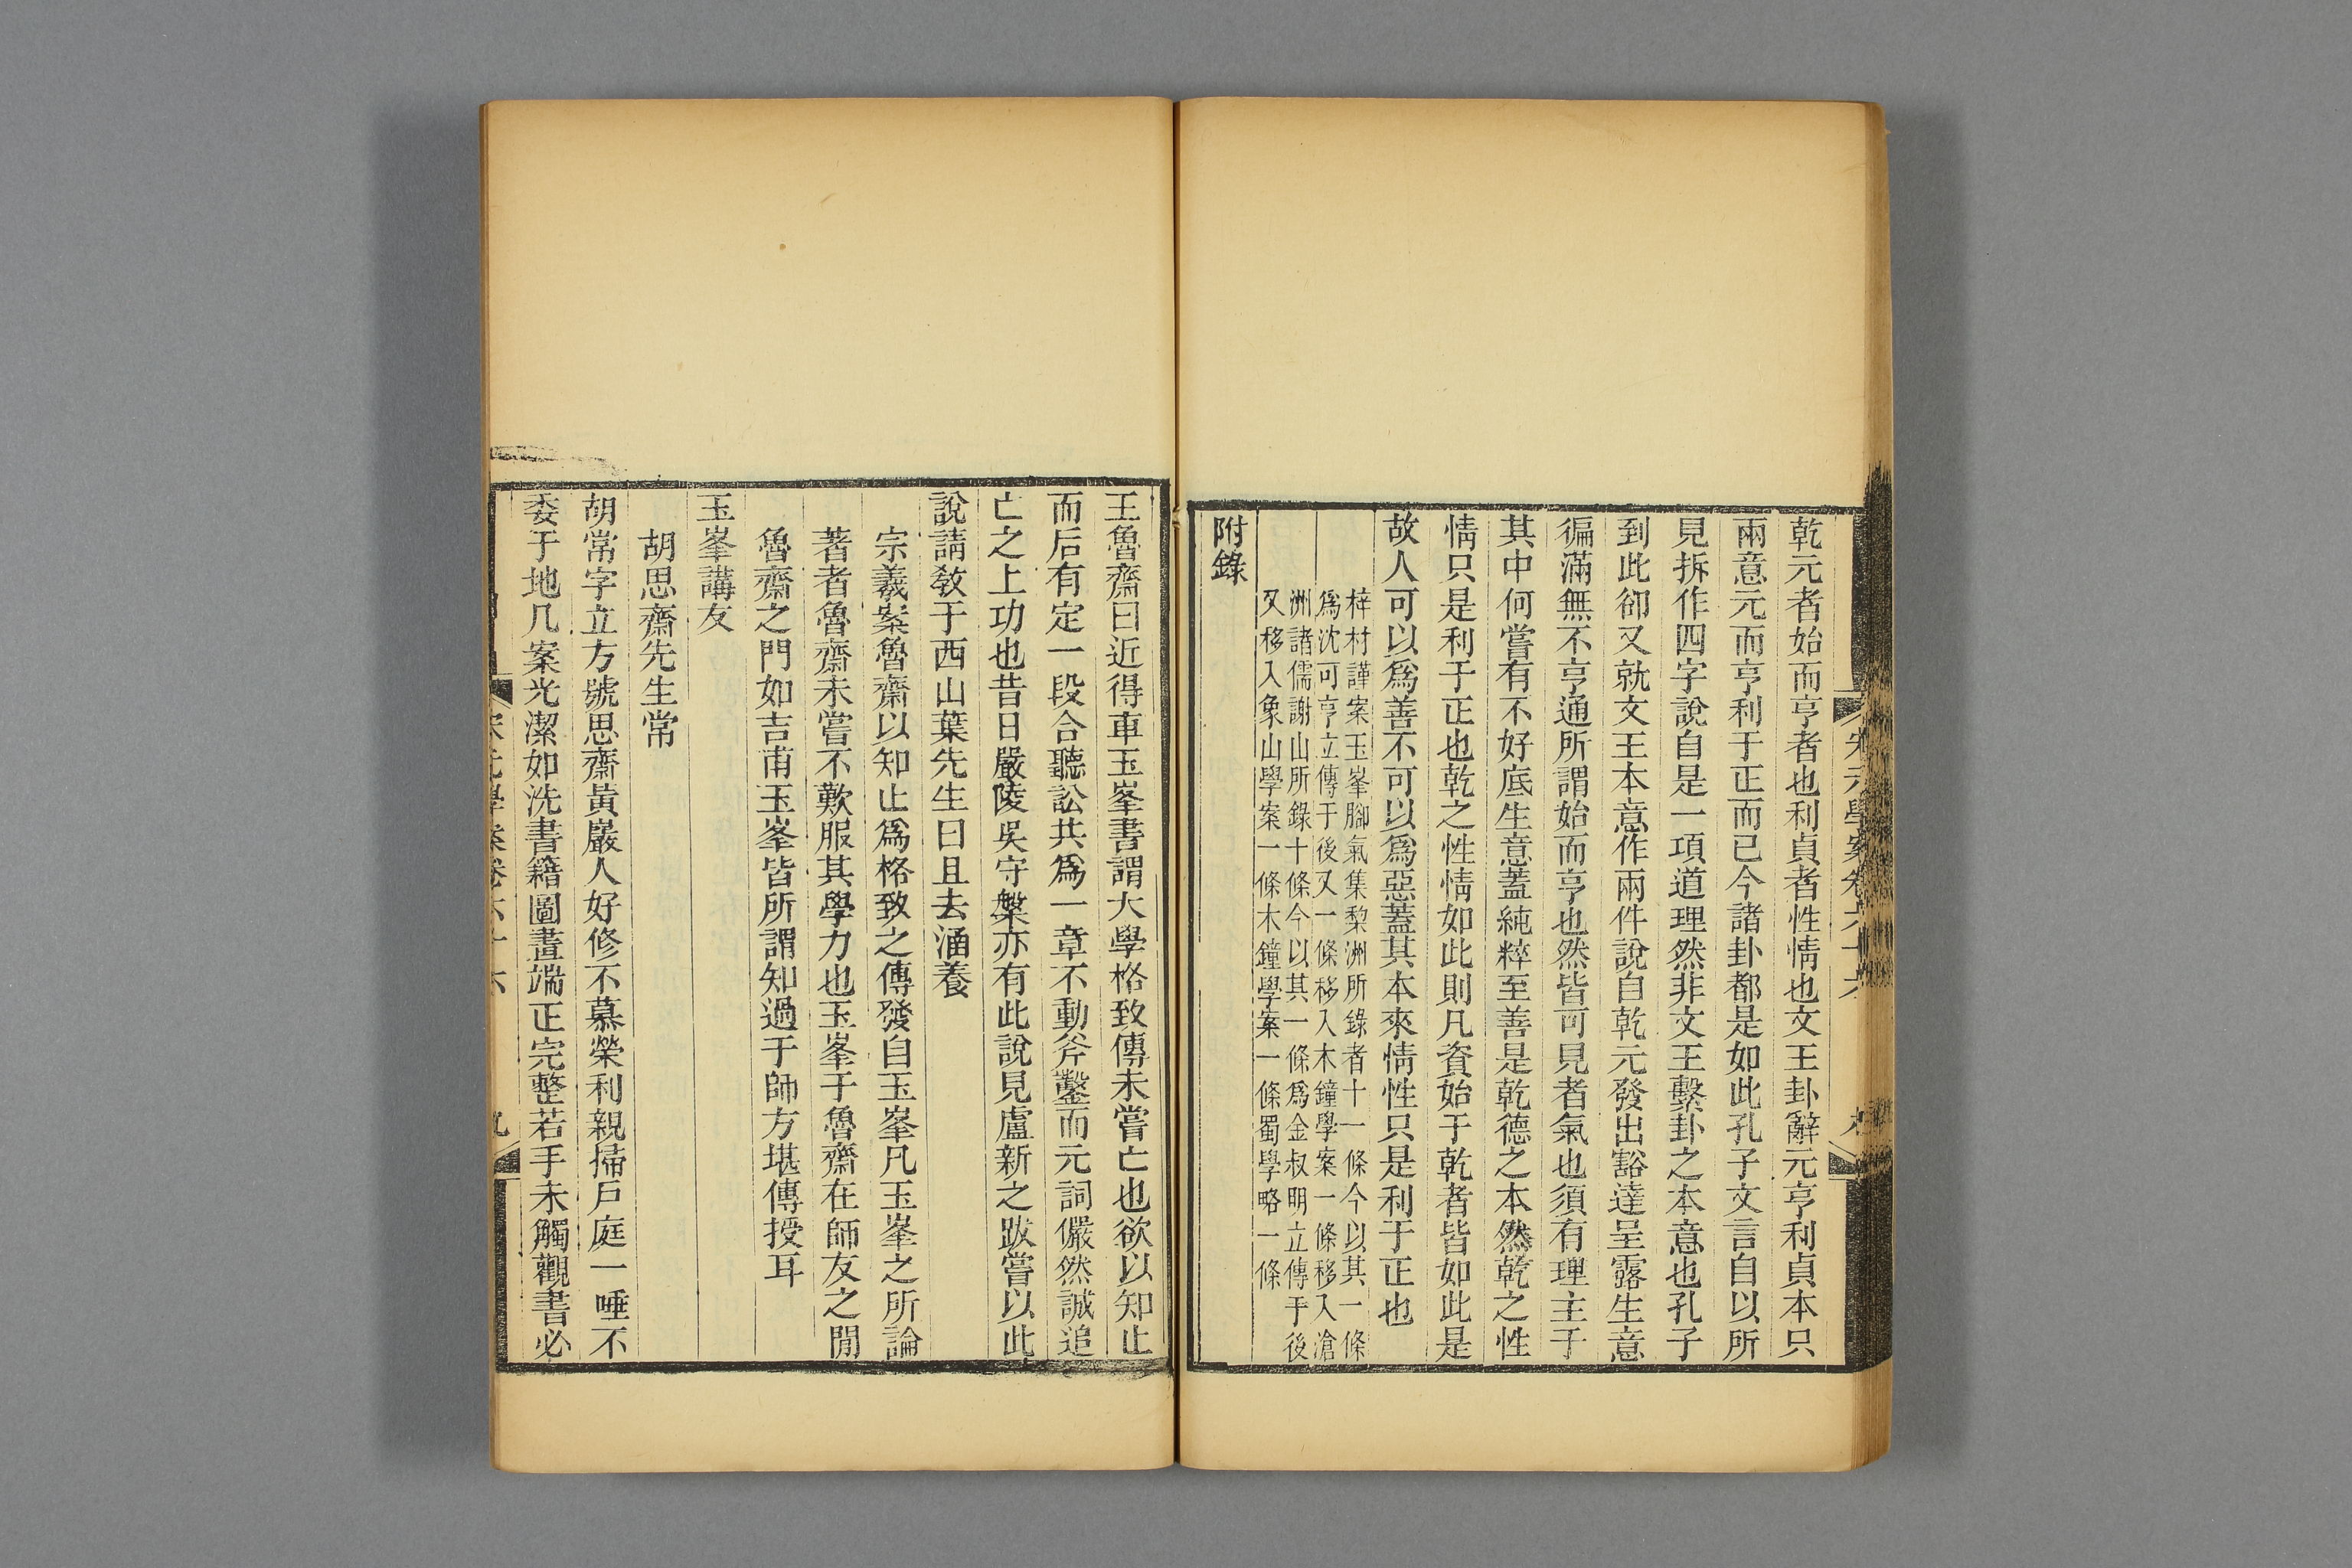 宋元學案卷六十六
乾元者始而亨者也利貞者性情也文王卦辭元亨利貞本只
兩意元而亨利于正而已今諸卦都是如此孔子文言自以所
見拆作四字說自是一項道理然非文王繫卦之本意也孔子
到此卻又就文王本意作兩件說自乾元發出豁達呈露生意
徧滿無不亨通所謂始而亨也然皆可見者氣也須有理主于
其中何嘗有不好底生意蓋純粹至善是乾德之本然乾之性
情只是利于正也乾之性情如此則凡資始于乾者皆如此是
故人可以爲善不可以爲惡蓋其本來情性只是利于正也
梓材謹案玉峯腳氣集棃洲所錄者十一條今以其一條
爲沈可亨立傳于後又一條移入木鐘學案一條移入滄
洲諸儒謝山所錄十條今以其一條爲金叔明立傳于後
又移入象山學案一條木鐘學案一條蜀學略一條
附錄
王魯齋曰近得車玉峯書謂大學格致傳未嘗亡也欲以知止
而后有定一段合聽訟共爲一章不動斧鑿而元詞儼然誠追
亡之上功也昔日嚴陵吳守槃亦有此說見盧新之跋嘗以此
說請敎于西山葉先生曰且去涵養
宗羲案魯齋以知止爲格致之傳發自玉峯凡玉峯之所論
著者魯齋未嘗不歎服其學力也玉峯于魯齋在師友之閒
魯齋之門如吉甫玉峯皆所謂知過于師方堪傳授耳
玉峯講友
胡思齋先生常
胡常字立方號思齋黃巖人好修不慕榮利親掃戶庭一唾不
委于地几案光潔如洗書籍圖畫端正完整若手未觸觀書必
宋元學案卷六十六
九